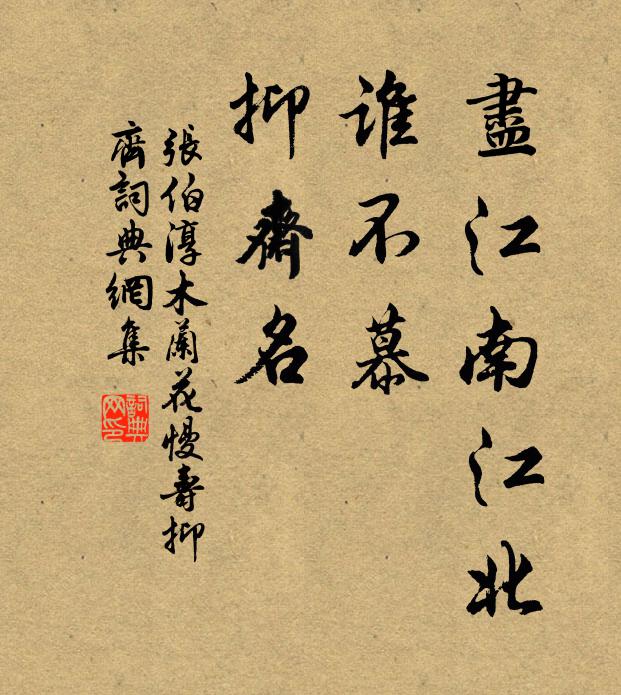 盡江南江北
誰不慕
抑齋名
張伯淳木蘭花慢壽抑
齊詞典網集
詞典网印